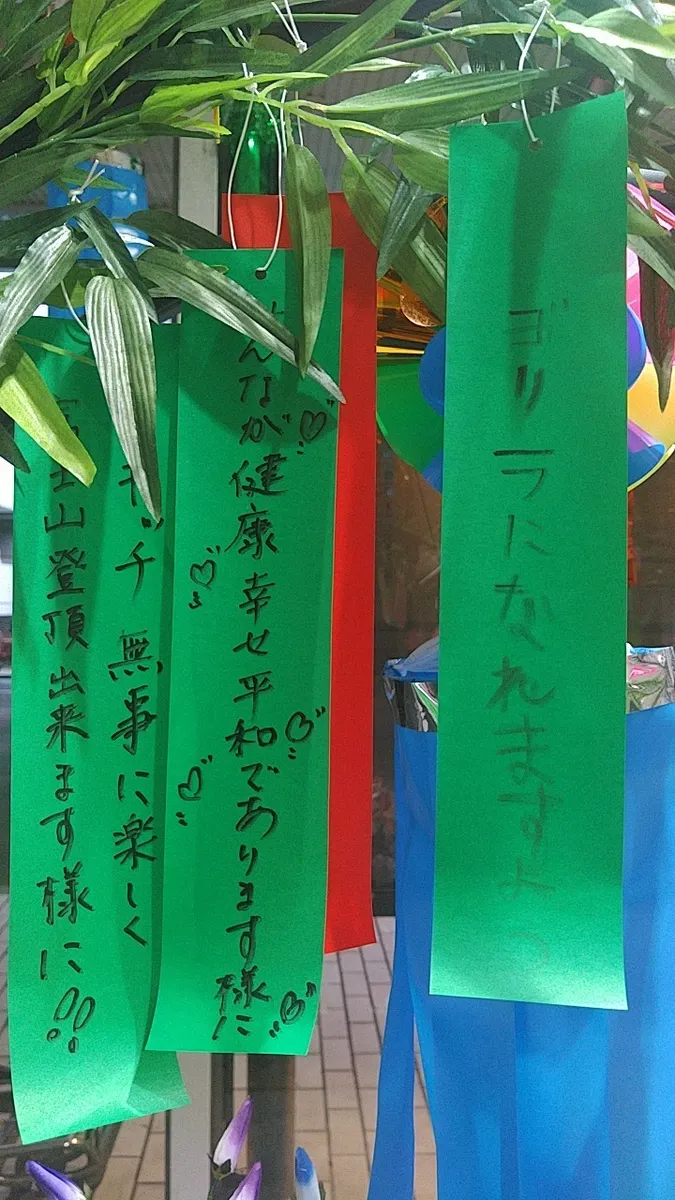 ゴリラになれますよう
んなが健康幸せ平和であります様に
キッチ 無事に楽しく
富士山登頂出来ます様に!!